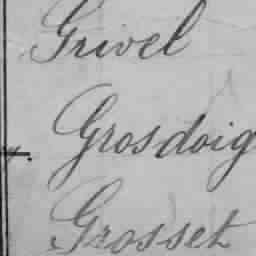 Grivel
Grosdoig
Grosset